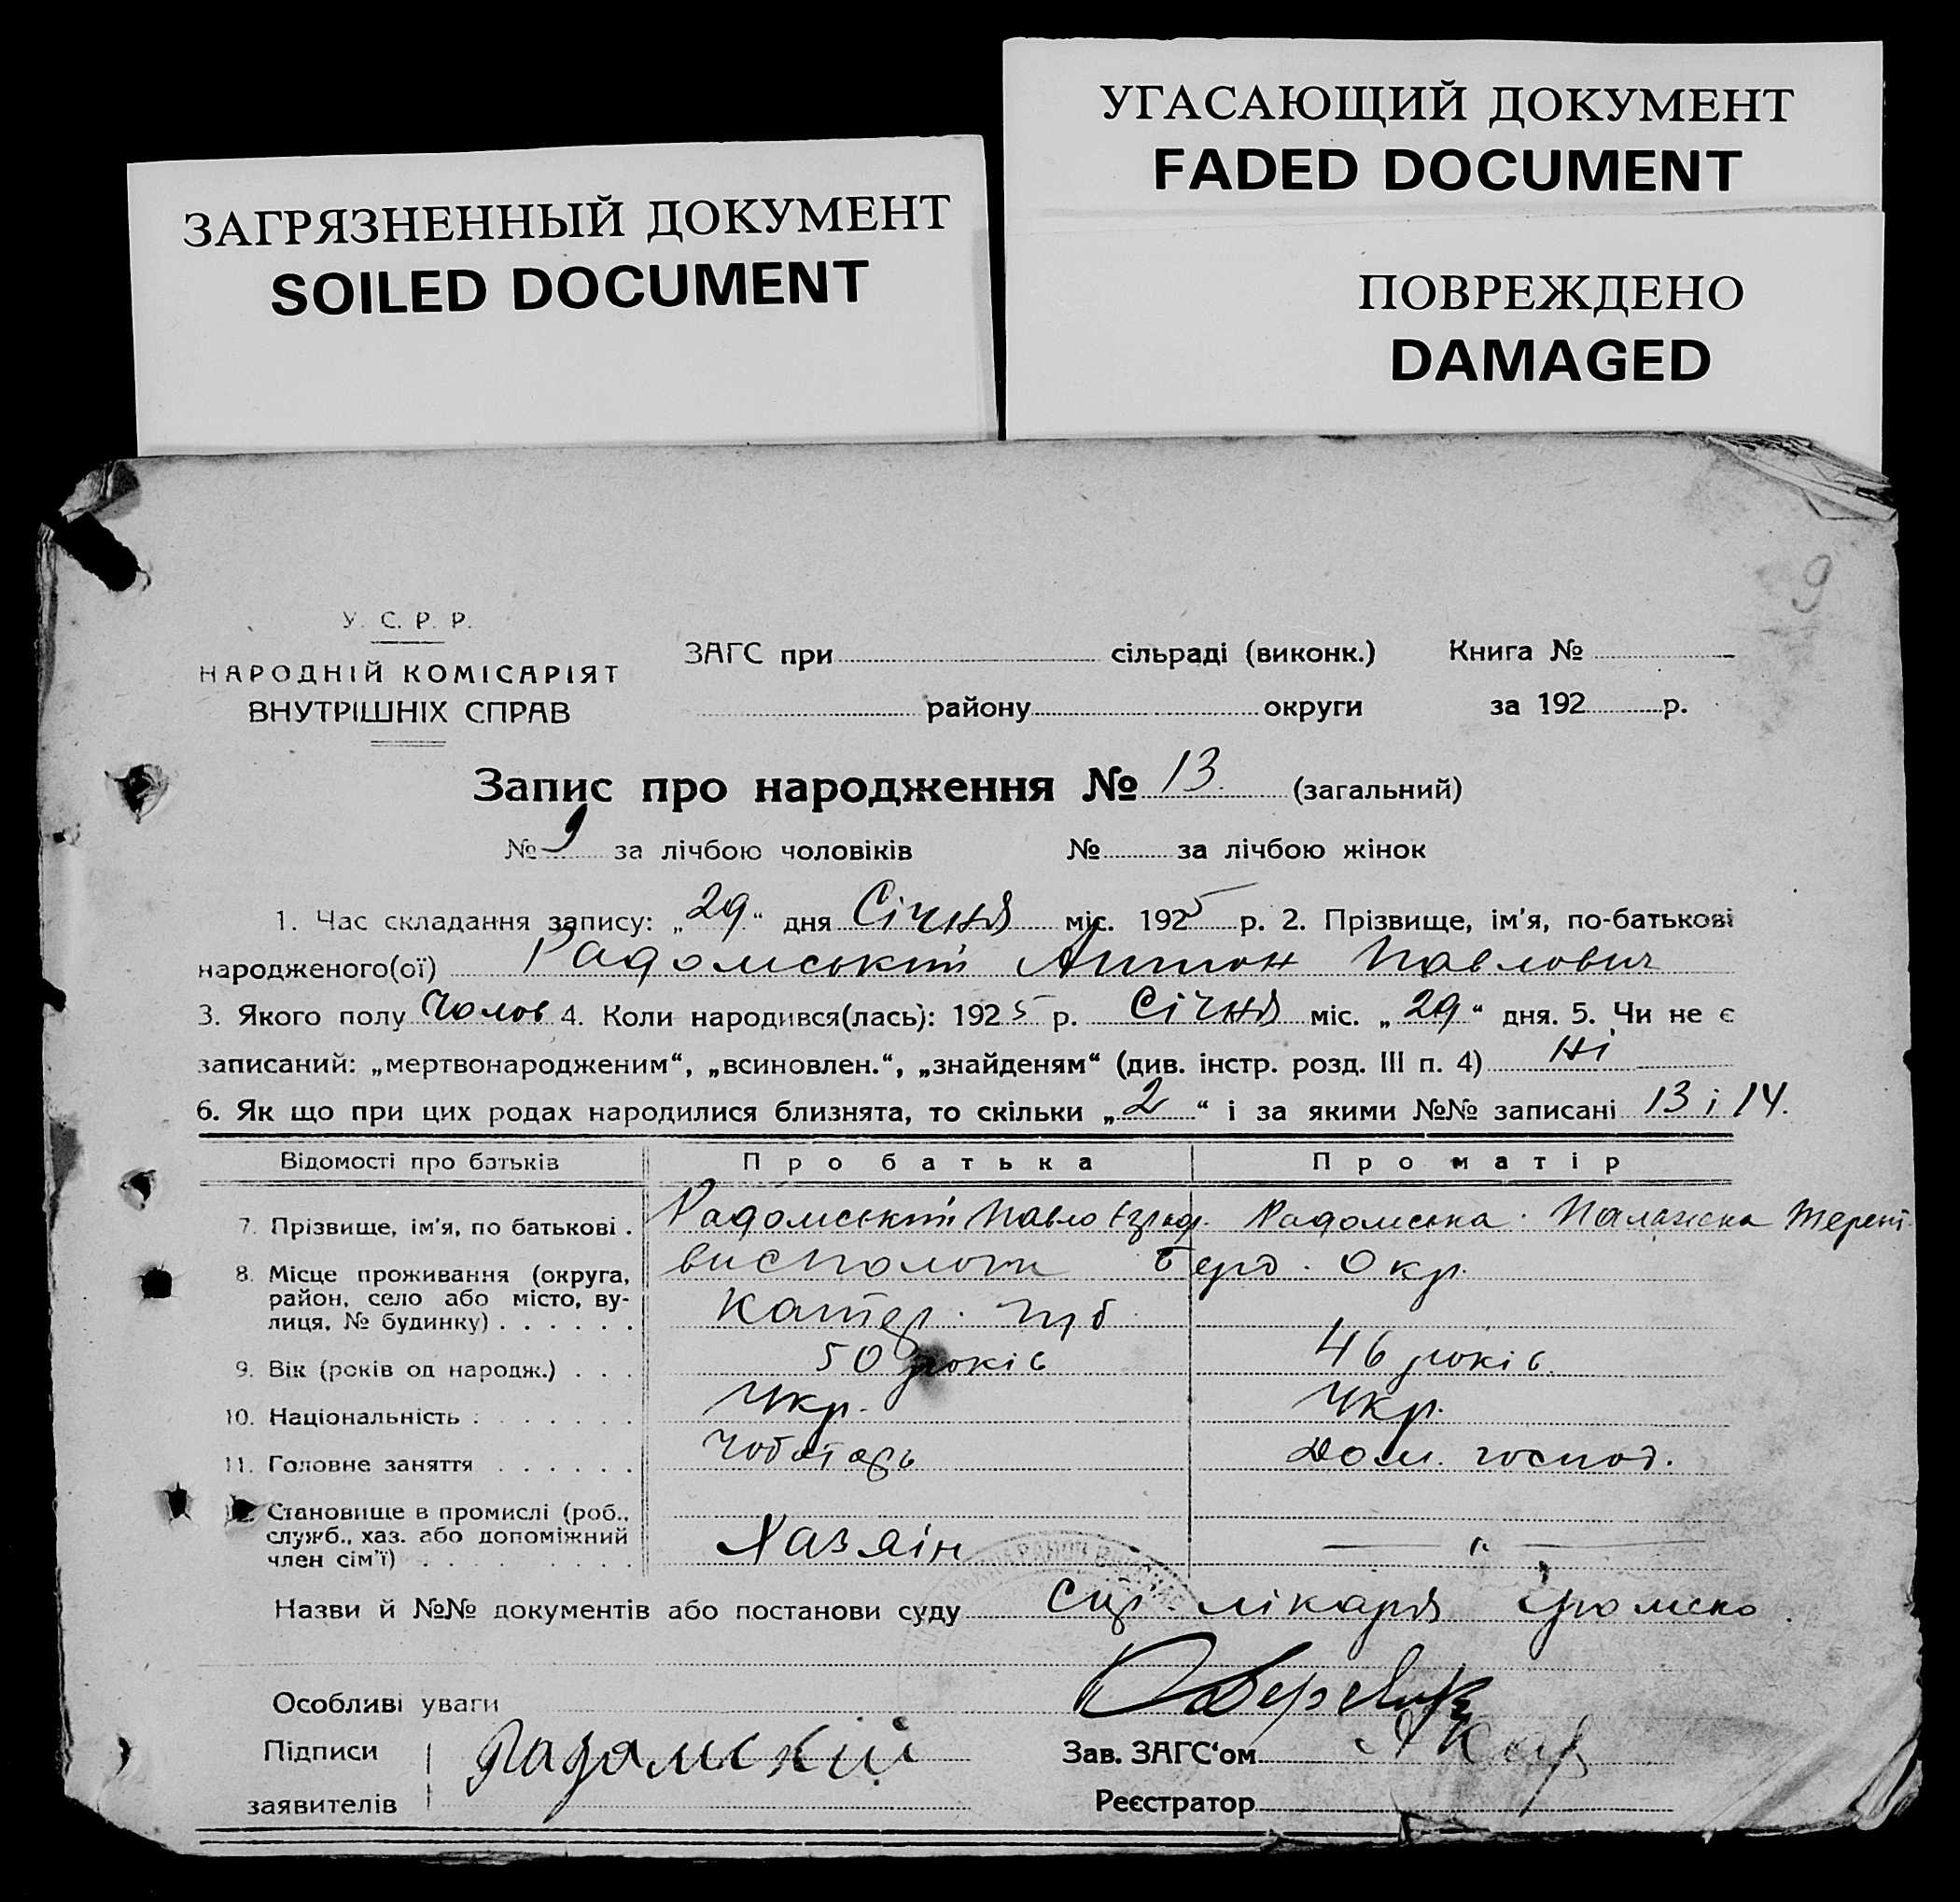 УГАСАЮЩИЙ ДОКУМЕНТ
FADED DOCUMENT
ЗАГРЯЗНЕННЫЙ ДОКУМЕНТ
SOILED DOCUMENT
ПОВРЕЖДЕНО
DAMAGED
9
У. С. Р. Р.
НАРОДНІЙ КОМІСАРІЯТ
ВНУТРІШНІХ СПРАВ
ЗАГС при сільраді (виконк.) Книга №
району округи за 192 р.
Запис про народження № 13. (загальний)
№ 9 за лічбою чоловіків № за лічбою жінок
1. Час складання запису: „29“ дня Січня міс. 1925 р. 2. Прізвище, ім'я, по-батькові
народженого(ої) Радомський Антон Павлович
3. Якого полу Чолов 4. Коли народився(лась): 1925 р. Січня міс. „29“ дня. 5. Чи не є
записаний: „мертвонародженим“, „всиновлен.“, „знайденям“ (див. інстр. розд. III п. 4) ні
6. Як що при цих родах народилися близнята, то скільки „2“ і за якими №№ записані 13 і 14.
Відомості про батьків Про батька Про матір
7. Прізвище, ім'я, по батькові . Радомський Павло Радомська Палажка Терент
8. Місце проживання (округа, Берд. Окр.
район, село або місто, ву-
лиця, № будинку) . . . . . . Катер.
9. Вік (років од народж.) . . . 50 років 46 років.
10. Національність : . . . . . . Укр. Укр.
11. Головне заняття . . . . . . Чоботарь Дом. господ.
Становище в промислі (роб.,
служб., хаз. або допоміжний
член сім'ї) . . . . . . . . Хазяін — " —
Назви й №№ документів або постанови суду лікаря
Особливі уваги
Підписи Радомскій Зав. ЗАГС‘ом
заявителів Реєстратор